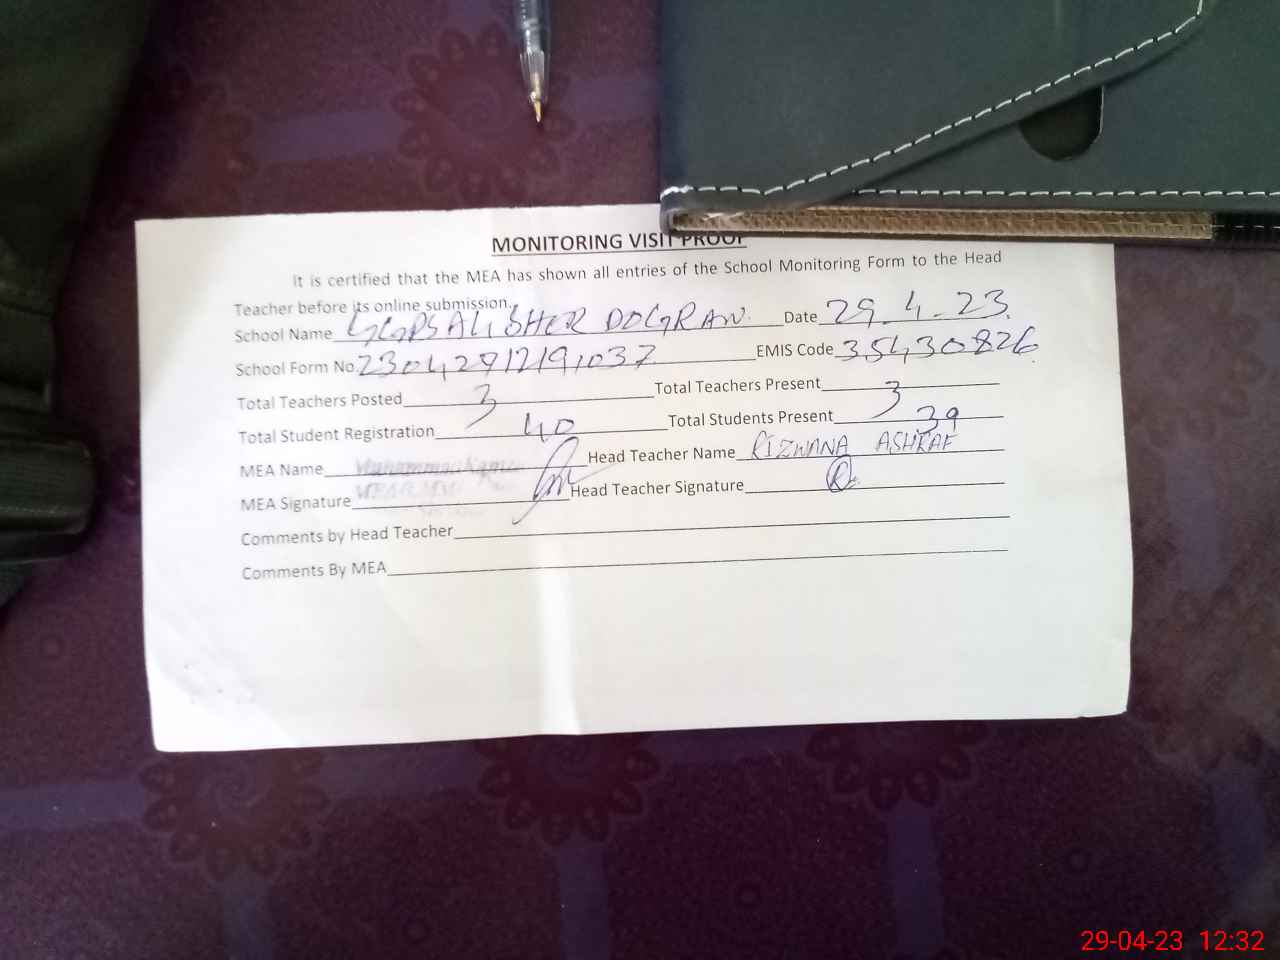 MONITORING VISIT PROOF
It is certified that the MEA has shown all entries of the School Monitoring Form to the Head
Teacher before its online submission.
School Name GGPS ALI SHER DOGRAN Date 29.4.23.
School Form No. 230429121911037 EMIS Code 35430826
Total Teachers Posted 3 Total Teachers Present 3
Total Student Registration 40 Total Students Present 39
MEA Name Muhammad Head Teacher Name RIZWANA ASHRAF
MEA Signature Head Teacher Signature
Comments by Head Teacher
Comments By MEA
29-04-23 12:32